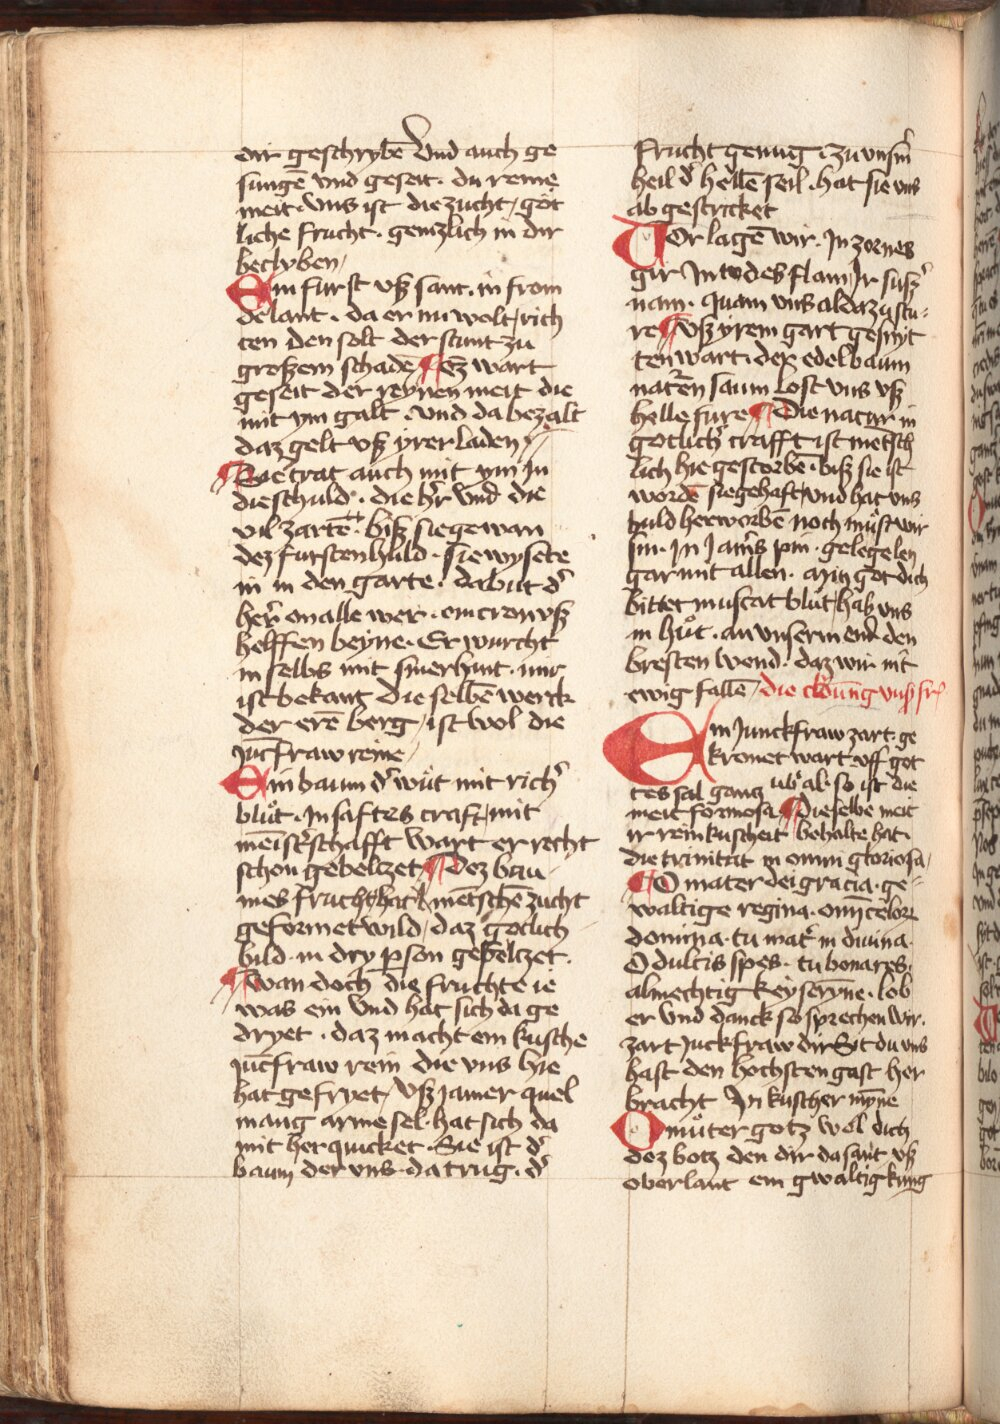 dir geschrybē Und auch ge
sungē vnd geseit · du reine
meit · Uns ist die zucht / got
liche frucht · gentzlich in dir
beclyben /
Ein furst vß sant · in from
de lant · da er im wolt / rich
ten den solt der stunt zu
großem schadē ¶ ez wart
geseit der reynen meit die
mit ym galt · vnd da bezalt
daz gelt vß yrer laden /
¶ Sie trat auch mit ym in
die schuld · die hr̄ Und die
vil zartē · biß sie gewan
dez fursten huld · sie wysete
in in den garte · da but d'
her' on alle wer · ein cron vß
helffen beyne · Er wurcht
in selbs mit siner hant · mir
ist bekant die selbē werck
der erē berg / ist wol die
jūcfraw reine /
Ein baum d' wüt mit rich'
blůt · In saftes craft / mit
meist'schafft wart er recht
schon gebeltzet / ¶ Dez bau
mes frucht hat menschē zucht
geformet wild / daz gotlich
bild · in dry pson gepeltzet ·
¶ wan doch die fruchte ie
was ein Und hat sich da ge
dryet · daz macht ein kusche
jūcfraw rein die vns hie
hat gefryet / Uß jamer quel
mang arme sel · hat sich da
mit herquicket · Sie ist d'
baum der vns da trug · d'
frucht genug · zu vnsm̄
heil d' hellē seil · hat sie vns
ab gestricket
Uor lagē wir · In zornes
gir In todes flam / Ir susz'
nam · quam vns al da zu stu=
re ¶ Uß yrem gart gesnyt
ten wart · der edel baum
naterē saum Lost vns vß
helle fure ¶ Die natur in
gotlich' crafft ist mensch
lich hie gestorbē · biß sie ist
wordē siegehaft / vnd hat vns
huld herworbē noch můst wir
sin · In jam's pin · gelegelen
gar mit allen · ayin got dich
bittet muscat blut / hab vns
in hůt · an vnserm end den
bresten wend · daz wir nit
ewig fallē /
Ein Junckfraw zart · ge
kronet wart · uff got
tes sal gantz ub' al · so ist die
meit formosa ¶ Die selbe meit
ir rein kuscheit behalte hat ·
die trinitat in omni gloriosa /
¶ O mater dei gracia · ge=
waltige regina · omi celor
domina · tu mat' in divina ·
O dulcis spes · tu bona res ·
almechtig keyserȳne · lob
er vnd danck so sprechen wir ·
zart juckfraw dir Sit du vns
hast den hochsten gast her
bracht In kuscher mȳne
O můter gotz wol dich
dez botz den dir da sant vß
oberlant ein gwaltig kung